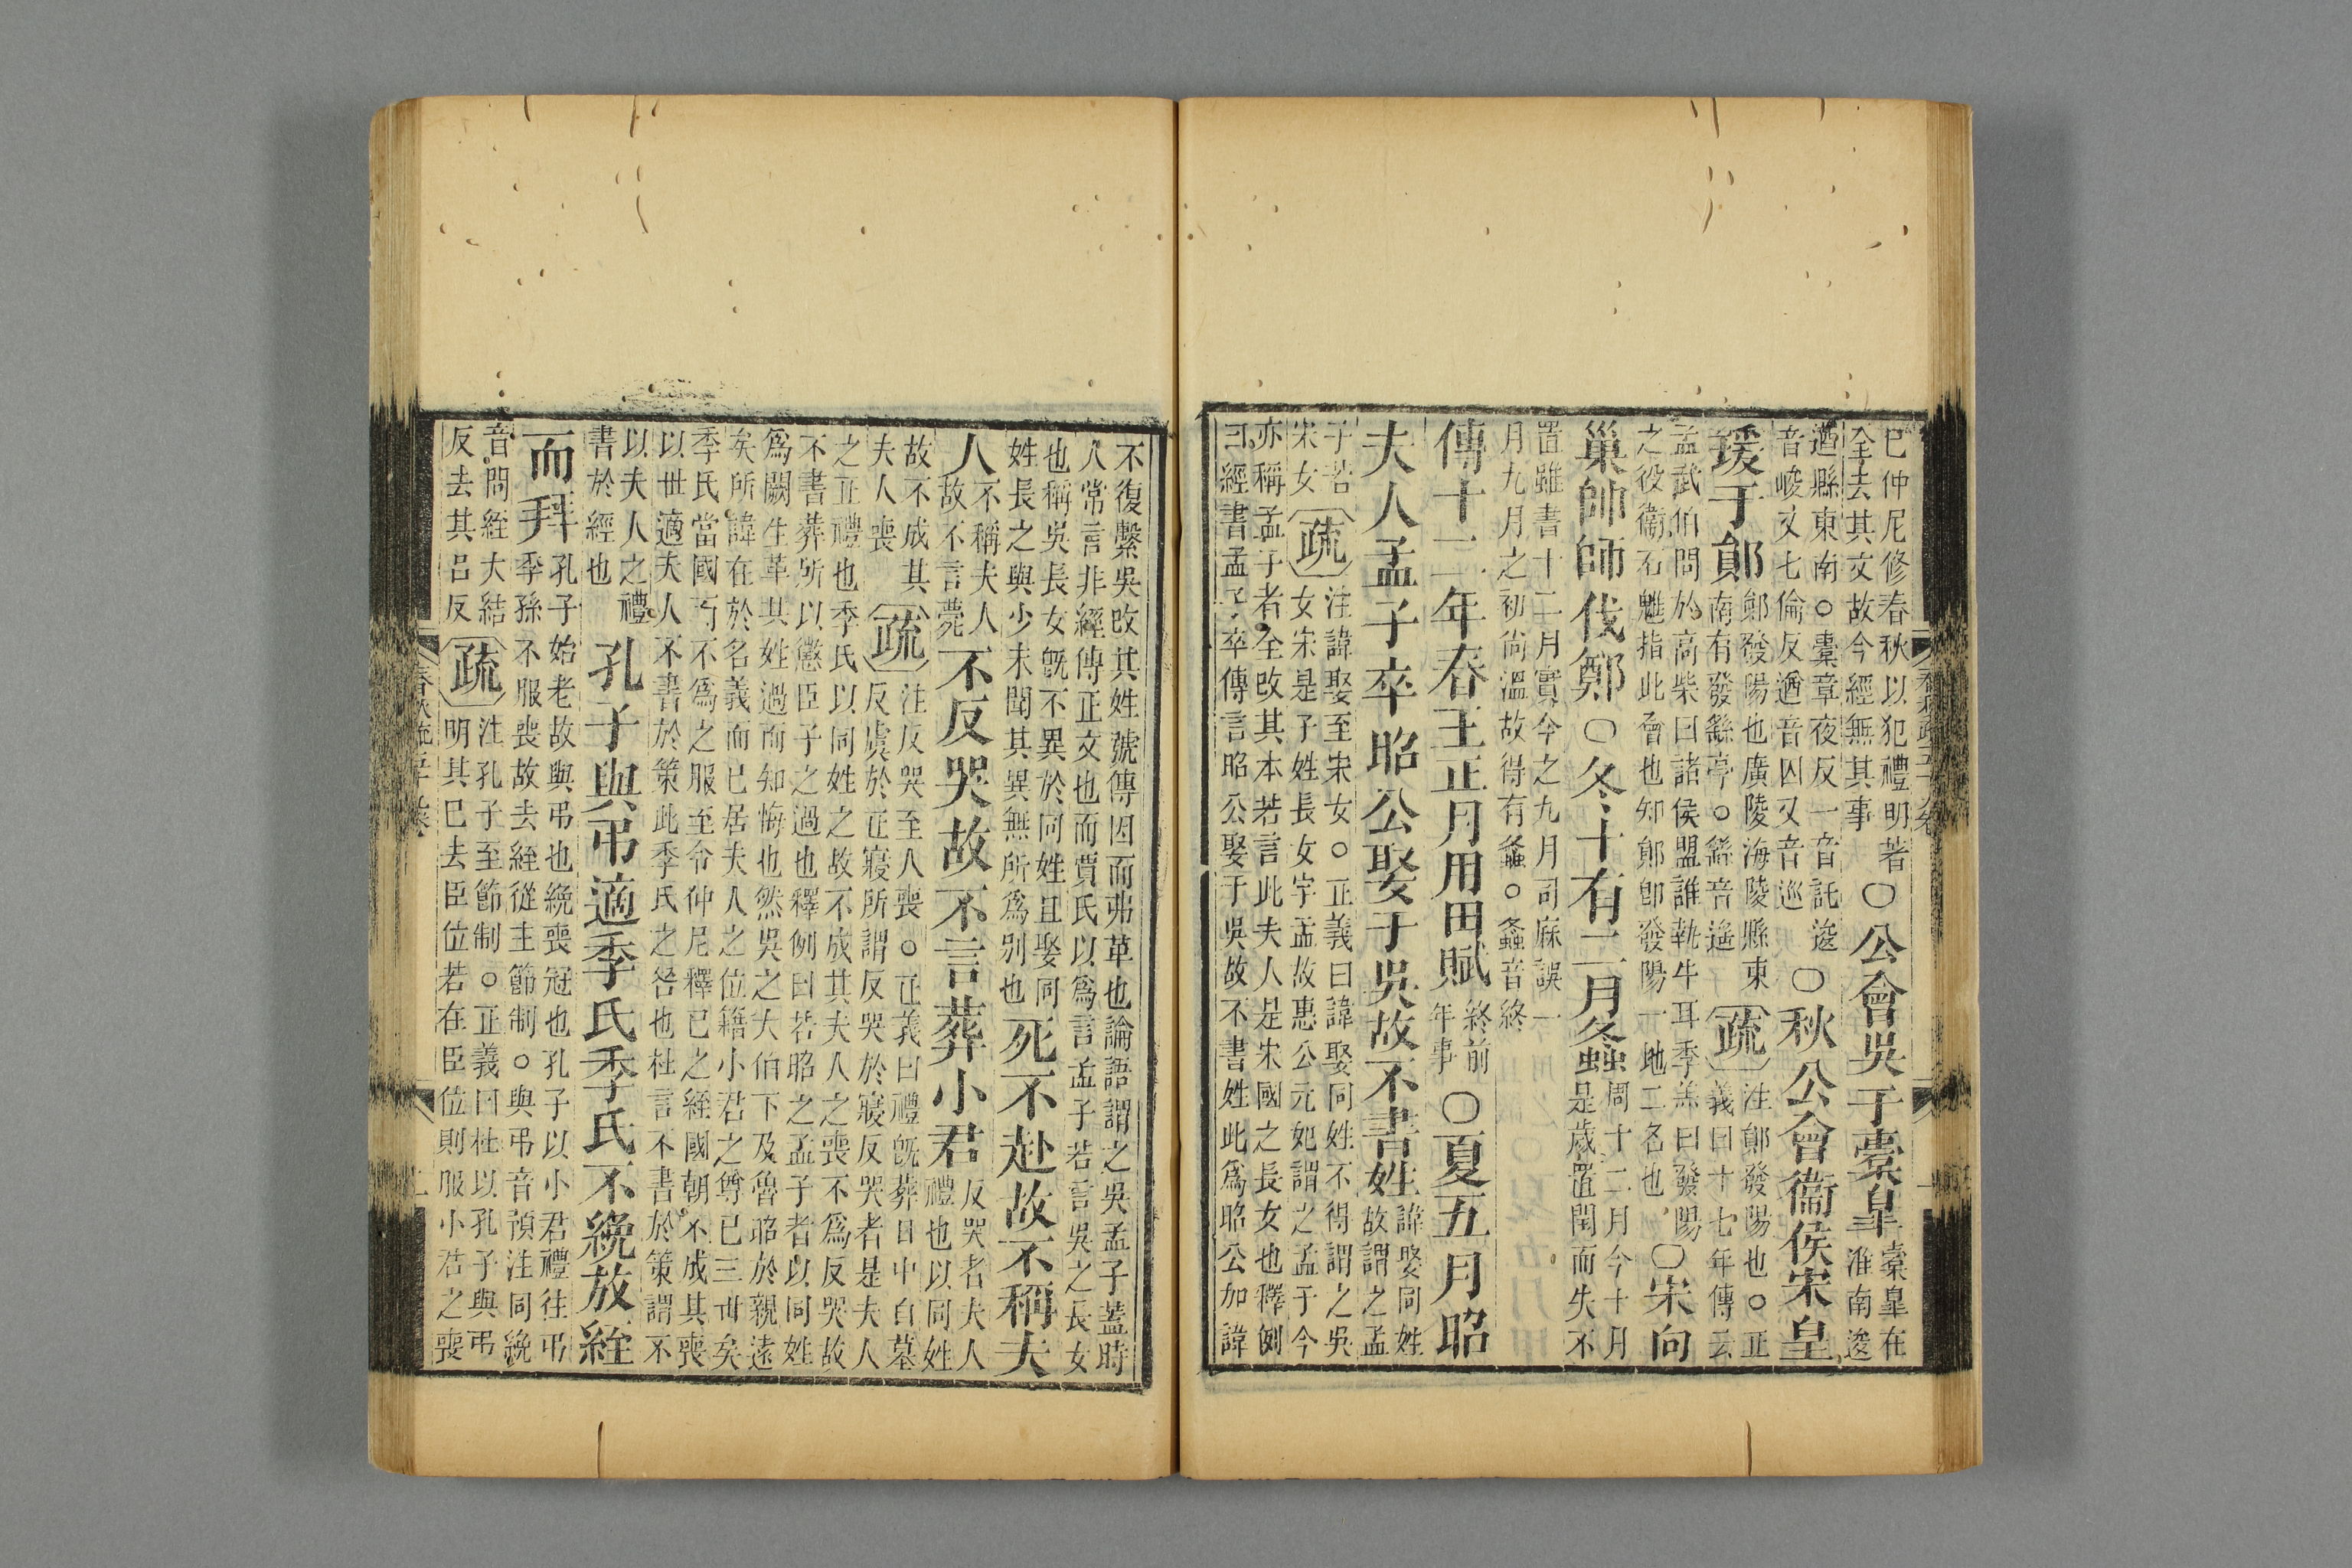 已仲尼修春秋以犯禮明著
全去其文故今經無其事
○公會吳于橐皋
橐皋在
淮南逡
遒縣東南○橐章夜反一音託逡
音峻又七倫反遒音囚又音巡
○秋公會衞侯宋皇
瑗于鄖
鄖發陽也廣陵海陵縣東
南有發繇亭○繇音遙
疏
注鄖發陽也○正
義曰十七年傳云
孟武伯問於高柴曰諸侯盟誰執牛耳季羔曰發陽
之役衞石魋指此會也知鄖卽發陽一地二名也
○宋向
巢帥師伐鄭○冬十有二月螽
周十二月今十月
是歲置閏而失不
置雖書十二月實今之九月司厤誤一
月九月之初尚溫故得有螽○螽音終
傳十二年春王正月用田賦
終前
年事
○夏五月昭
夫人孟子卒昭公娶于吳故不書姓
諱娶同姓
故謂之孟
子若
宋女
疏
注諱娶至宋女○正義曰諱娶同姓不得謂之吳
女宋是子姓長女字孟故惠公元妃謂之孟子今
亦稱孟子者全改其本若言此夫人是宋國之長女也釋例
曰經書孟子卒傳言昭公娶于吳故不書姓此爲昭公加諱
不復繫吳改其姓號傳因而弗革也論語謂之吳孟子蓋時
人常言非經傳正文也而賈氏以爲言孟子若言吳之長女
也稱吳長女旣不異於同姓且娶同
姓長之與少未聞其異無所爲別也
死不赴故不稱夫
人
不稱夫人
故不言薨
不反哭故不言葬小君
反哭者夫人
禮也以同姓
故不成其
夫人喪
疏
注反哭至人喪○正義曰禮旣葬日中自墓
反虞於正寢所謂反哭於寢反哭者是夫人
之正禮也季氏以同姓之故不成其夫人之喪不爲反哭故
不書葬所以懲臣子之過也釋例曰若昭之孟子者以同姓
爲闕生革其姓過而知悔也然吳之大伯下及魯昭於親遠
矣所諱在於名義而已居夫人之位籍小君之尊已三世矣
季氏當國而不爲之服至令仲尼釋已之絰國朝不成其喪
以世適夫人不書於策此季氏之咎也杜言不書於策謂不
以夫人之禮
書於經也
孔子與弔適季氏季氏不絻放絰
而拜
孔子始老故與弔也絻喪冠也孔子以小君禮往弔
季孫不服喪故去絰從主節制○與弔音預注同絻
音問絰大結
反去其呂反
疏
注孔子至節制○正義曰杜以孔子與弔
明其已去臣位若在臣位則服小君之喪